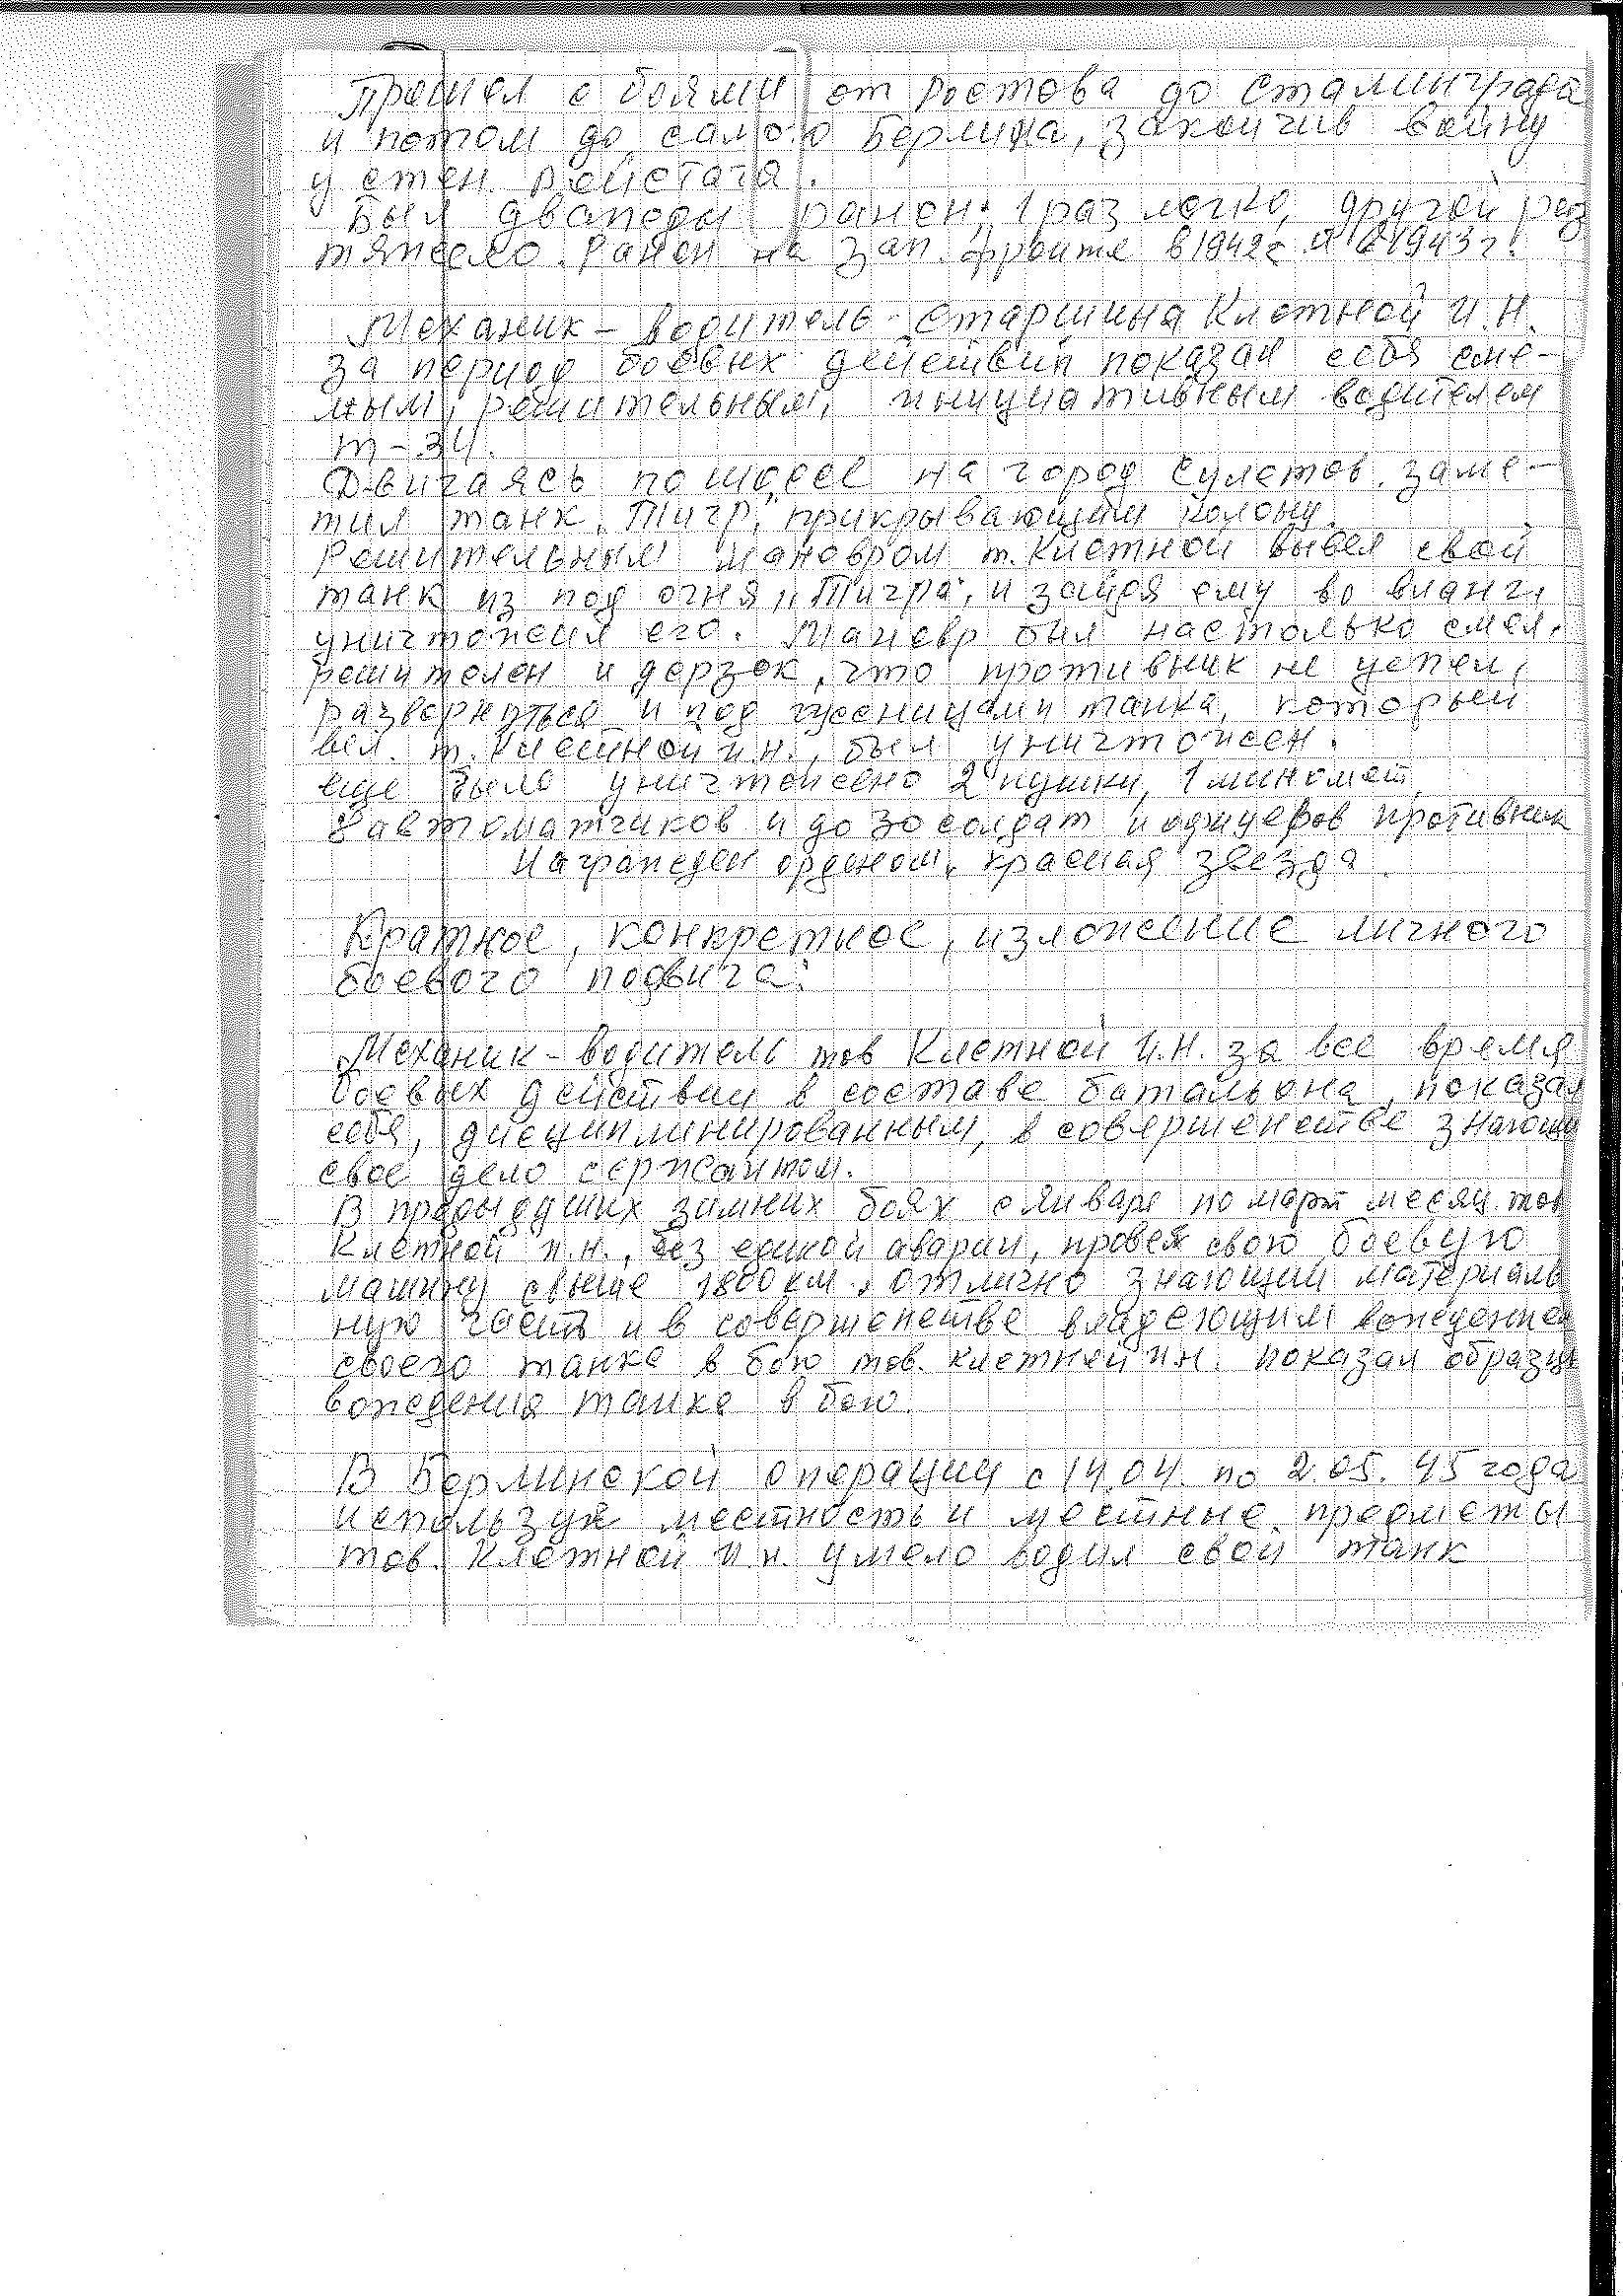 Прошел с боями от Ростова до Сталинграда
и потом до самого Берлина, закончив войну
у стен Рейстага.
Был дважды ранен; 1 раз легко, другой раз
тяжело. Ранен на Зап. фронте в 1942г и в 1943г.
Механик - водитель - старшина Клетной И.Н.
за период боевых действий показал себя сме-
лым, решительным, инициативным водителем
Т-34.
Двигаясь по шоссе на город Сулетов, заме-
тил танк „Тигр", прикрывающий колону.
Решительным мановром т. Клетной вывел свой
танк из под огня „Тигра", и зайдя ему во вланг,
уничтожил его. Маневр был настолько смел,
решителен и дерзок, что противник не успел,
развернуться и под гусеницами танка, который
вел т. Клетной И.Н., был уничтожен.
еще было уничтожено 2 пушки, 1 миномет,
8 автоматчиков и до 30 солдат и офицеров противник
Награжден орденом „Красная звезда
Краткое, конкретное, изложение личного
боевого подвига:
Механик - водитель тов Клетной И.Н. за все время
боевых действий в составе батальона, показал
себя, дисциплинированным, в совершенстве знающи
свое дело сержантом.
В предыдущих зимних боях с января по март месяц тов
Клетной И.Н., без единой аварии, провел свою боевую
машину свыше 1800 км. Отлично знающий материаль
ную часть и в совершенстве владеющим вождением
своего танка в бою тов. Клетной И.Н. показал образцы
вождения танка в бою.
В Берлинской операции с 14.04. по 2.05. 45 года
используя местность и местные предметы
тов. Клетной И.Н. умело водил свой танк